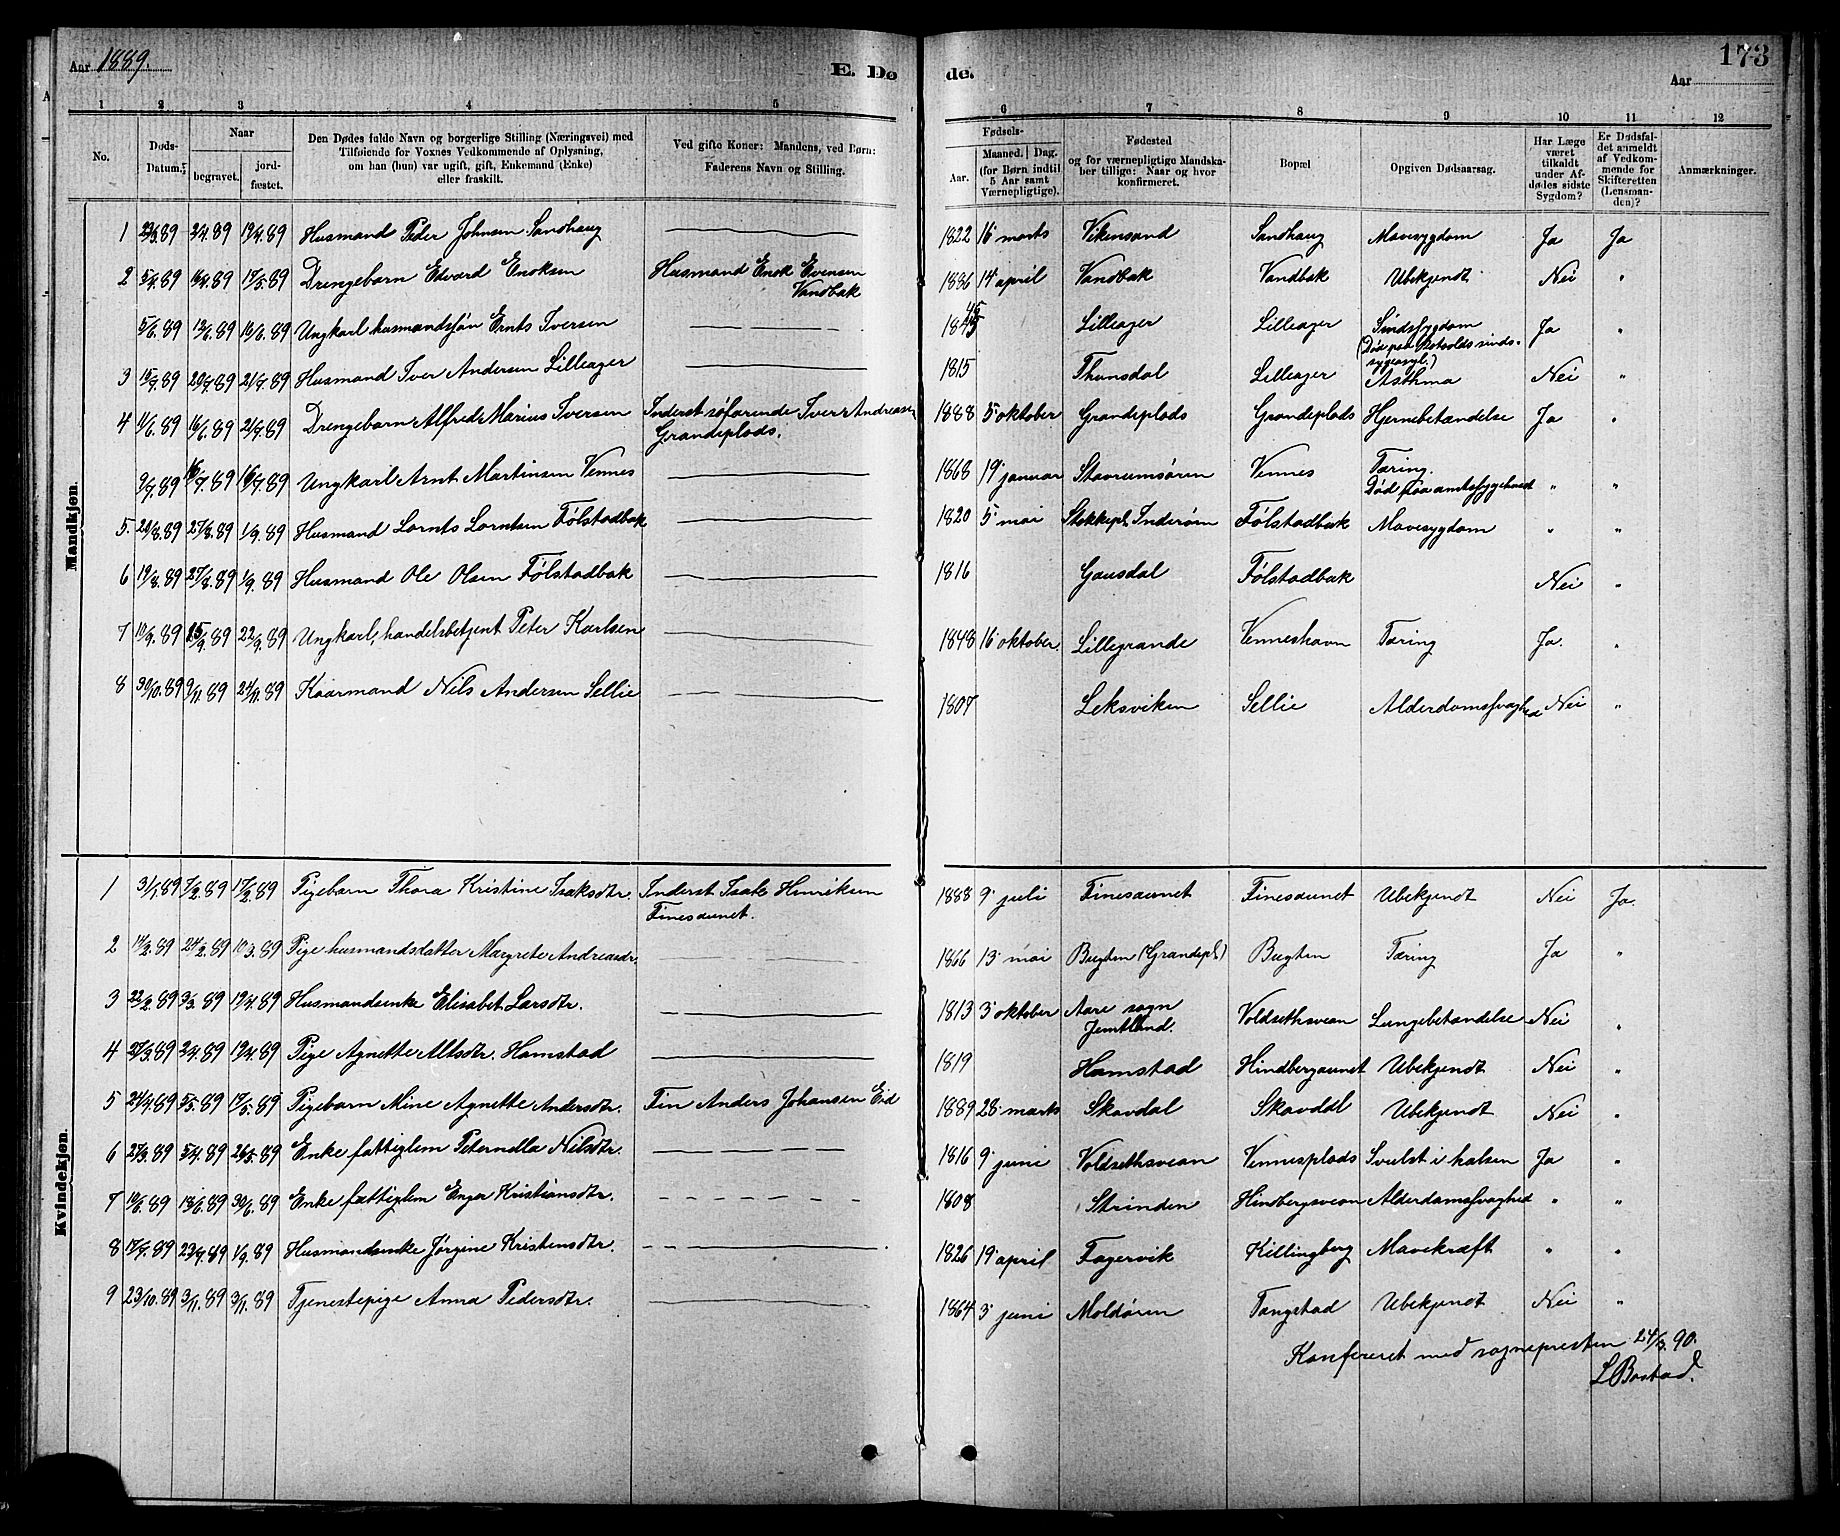 Aar 1889.
E. Dø de.
Aar
173
1 2 3 4 5 6 7 8 9 10 11 12
No.
Døds-Datum.
Naar
begravet.
jordfæstet.
Den Dødes fulde Navn og borgerlige Stilling (Næringsvei) med
Tilføiende for Voxnes Vedkommende af Oplysning,
om han (hun) var ugift, gift, Enkemand (Enke)
eller fraskilt.
Ved gifte Koner: Mandens, ved Børn:
Faderens Navn og Stilling.
Fødsels-
Aar.
Maaned. Dag.
(for Børn indtil
5 Aar samt
Værnepligtige).
Fødested
og for værnepligtige Mandska-
ber tillige: Naar og hvor
konfirmeret.
Bopæl
Opgiven Dødsaarsag.
Har Læge
været
tilkaldt
under Af-
dødes sidste
Sygdom?
Er Dødsfal-
det anmeldt
af Vedkom-
mende for
Skifteretten
(Lensman-
den)?
Anmærkninger.
Mandkjøn.
1 23/3.89 2/4.89 19/4.89 Husmand Peder Johnsen Sandhaug 1822 16 marts Vikensand Sandhaug Mavesygdom Ja Ja
2 5/4.89 16/4.89 17/5.89 Drengebarn Edvard Enoksen Husmand Enok Evensen 1886 14 april Vandbak Vandbak Ubekjendt Nei "
Vandbak
5/6.89 12/6.89 16/6.89 Ungkarl husmandssøn Ernts Iversen 1845 Lilleager Lilleager Sindssygdom Ja "
(Død paa Rotvolds sinds-
sygeasyl.)
3 15/7.89 20/7.89 21/7.89 Husmand Iver Andersen Lilleager 1815 Lilleager Asthma Nei "
4 11/6.89 16/6.89 21/7.89 Drengebarn Alfred Marius Iversen Inderst søfarende Iver Andreasen 1888 5 oktober Grandeplads Grandeplads Hjernebetændelse Ja "
Grandeplads.
9/7.89 16/7.89 16/7.89 Ungkarl Arnt Martinsen Vennes 1868 19 januar Vennes Tæring. " "
Død paa amtssygehuset
5. 20/8.89 27/8.89 1/9.89 Husmand Lornts Lorntsen Følstadbak 1820 5 mai Stokkepl. Inderøen Følstadbak Mavesygdom " "
6 19/8.89 27/8.89 1/9.89 Husmand Ole Olsen Følstadbak 1816 Gausdal Følstadbak Nei "
7 10/9.89 15/9.89 22/9.89 Ungkarl, handelsbetjent Peter Karlsen 1848 16 oktober. Lillegrande Venneshavn Tæring Ja. "
8 30/10.89 9/11.89 24/11.89 Kaarmand Nils Andersen Sellie 1807 Leksviken Sellie Alderdomssvaghed Nei "
Kvindekjøn.
1 31/1.89 7/2.89 17/2.89 Pigebarn Thora Kristine Isaksdtr. Inderst Isak Henriksen 1888 9 juli Finesaunet Finesaunet Ubekjendt Nei Ja.
Finesaunet.
2 14/2.89 24/2.89 10/3.89 Pige husmandsdatter Margrete Andreasdr. 1866 13 mai Bugten (Grandepl.) Bugten Tæring Ja "
3 22/2.89 3/3.89 19/4.89 Husmandsenke Elisabet Larsdtr. 1813 3 oktober Aare sogn Voldsethsvean Lungebetændelse Nei "
Jemtland.
4 27/3.89 2/4.89 19/4.89 Pige Agnette Hamstad 1819 Hamstad Hindbergaunet Ubekjendt Nei "
5 24/4.89 5/5.89 17/5.89 Pigebarn Mine Agnette Andersdtr. Fin Anders Johansen Eid 1889 28 marts Skavdal Skavdal Ubekjendt Nei "
6 27/3.89 5/4.89 26/5.89 Enke fattiglem Peternella Nilsdtr. 1816 9 juni Voldsethsvean Vennesplads Svulst i halsen Ja "
7 10/6.89 13/6.89 30/6.89 Enke fattiglem Enger Kristiansdtr. 1808 Strinden Hindbergsvean Alderdomssvaghed " "
8 17/7.89 23/7.89 1/9.89 Husmandsenke Jørgine Kristensdtr. 1826 19 april Fagervik Killingberg Mavekræft " "
9 23/10.89 3/11.89 3/11.89 Tjenestepige Anna Pedersdtr. 1864 3 juni Moldøren Tangstad Ubekjendt Nei "
Konfereret med sognepresten 24/3.90.
L Bostad.